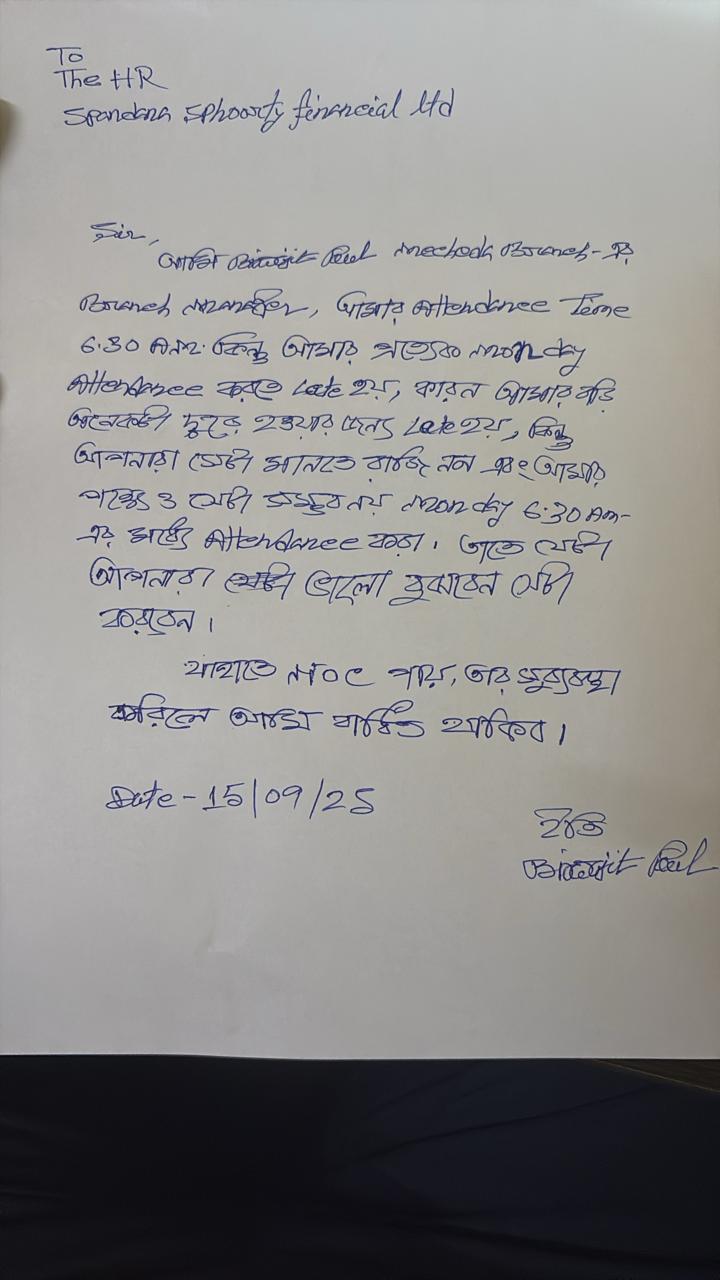 To
The HR
Spandana Sphoorty financial ltd
Sir,
আমি Biswajit Paul Mecheda Branch-এর
Branch Manager, আমার Attendance Time
6:30 AM. কিন্তু আমার প্রত্যেক Monday
Attendance করতে Late হয়, কারন আমার বাড়ি
অনেকটা দূরে হওয়ার জন্য Late হয়, কিন্তু
আপনারা সেটা মানতে রাজি নন এবং আমার
পক্ষে ও সেটা সম্ভব নয় Monday 6:30 Am-
এর মধ্যে Attendance করা। তাতে যেটা
আপনারা ভালো বুঝবেন সেটা
করবেন।
যাহাতে NOC পায়, তার সুব্যবস্থা
করিলে আমি বাধিত থাকিব।
Date - 15/09/25
ইতি
Biswajit Paul